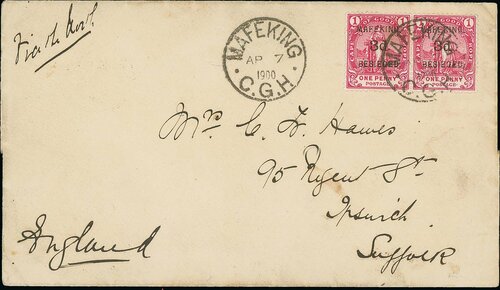 Via the North
MAFEKING
AP 7
1900
C.G.H.
1 OF GOOD 1
MAFEKING
3d
BESIEGED.
ONE PENNY
POSTAGE
1 OF GOOD 1
MAFEKING
3d
BESIEGED.
ONE PENNY
POSTAGE
MAFEKING
C.G.H.
Mrs C. F. Hawes
95 Regent St.
Ipswich
Suffolk
England